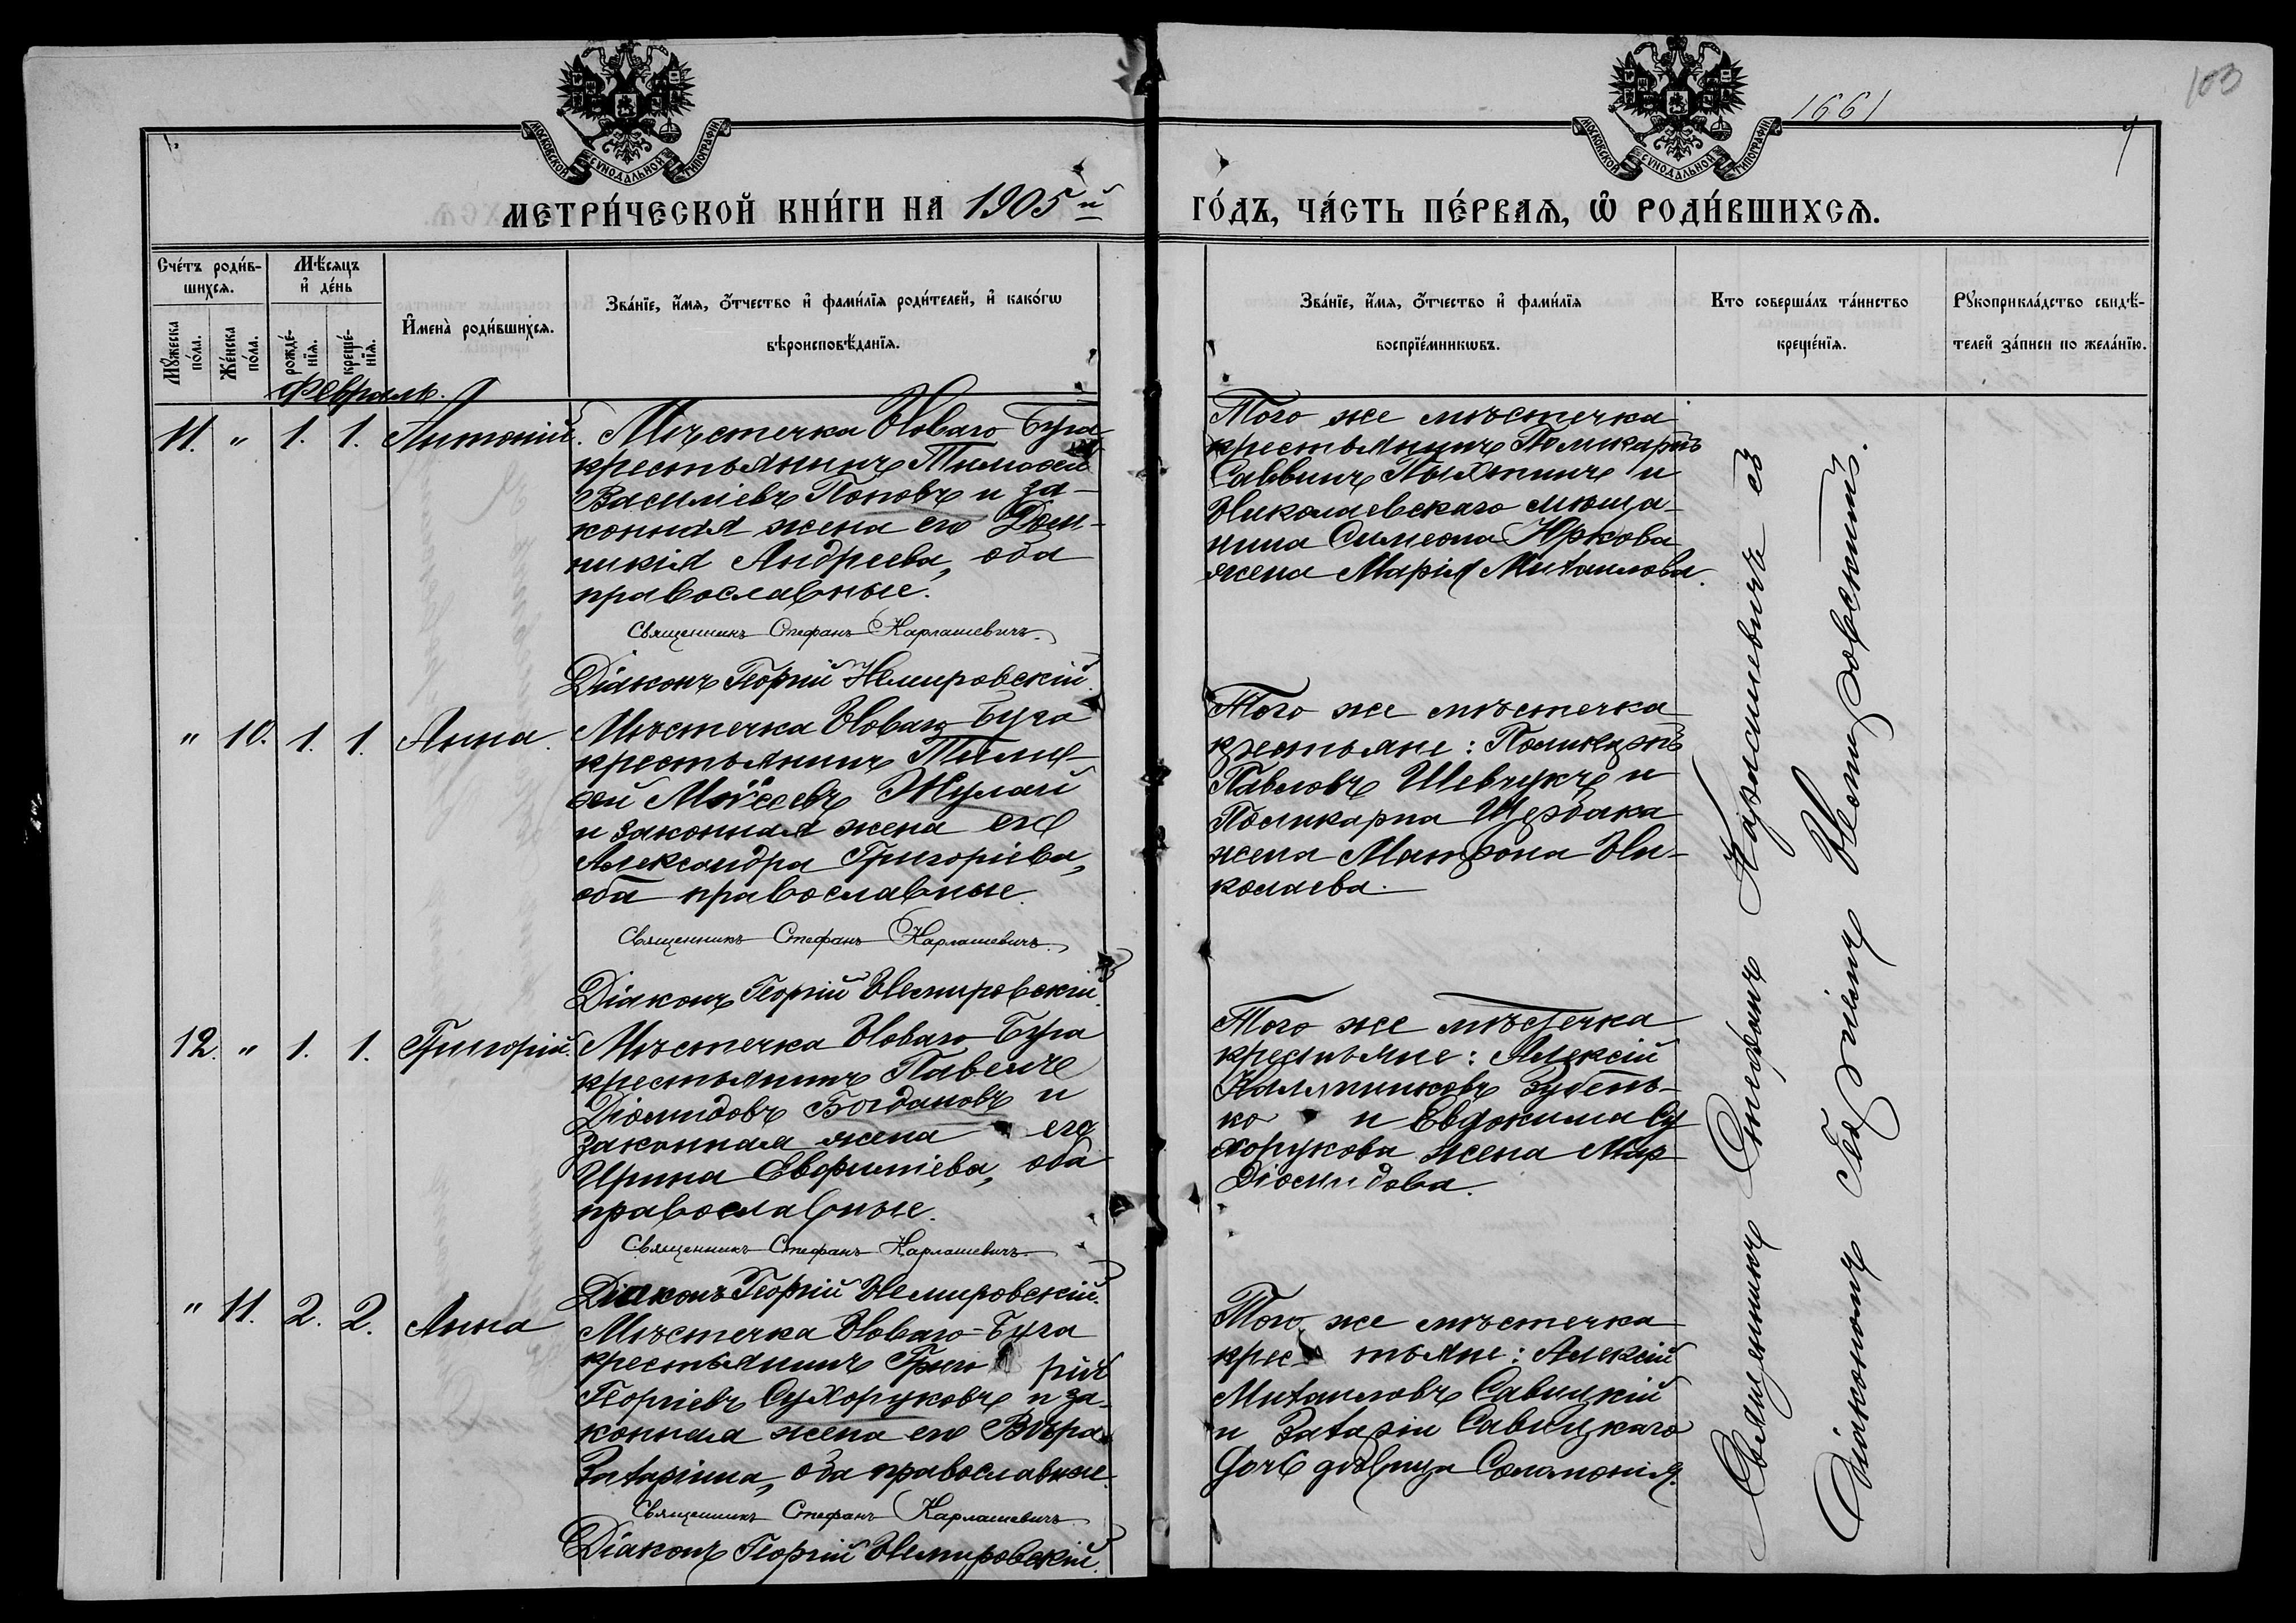 103
1661
МОСКОВСКОЙ СѴНОДАЛЬНОЙ ТИПОГРАФІИ
МОСКОВСКОЙ СѴНОДАЛЬНОЙ ТИПОГРАФІИ
МЕТРИ́ЧЕСКОЙ КНИ́ГИ НА 1905й ГО́ДЪ, ЧА́СТЬ ПЕ́РВАЯ, Ѡ҆ РОДИ́ВШИХСЯ.
Сче́тъ роди́в-
шихся.
Мѣ́сяцъ
и҆ де́нь
Мꙋ́жеска
по́ла.
Же́нска
по́ла.
рожде́-
нїя.
креще́-
нїя.
И҆мена̀ роди́вшихся.
Зва́нїе, и҆́мя, ѻ҆́тчество и҆ фами́лїя роди́телей, и҆ како́гѡ
вѣроисповѣ́данїя.
Зва́нїе, и҆́мя, ѻ҆́тчество и҆ фами́лїя
воспрїе́мникѡвъ.
Кто соверша́лъ та́инство
креще́нїя.
Рꙋкоприкла́дство свидѣ́-
телей за́писи по жела́нїю.
Февраль.
11. " 1. 1. Антоній.
Мѣстечка Новаго Буга
крестьянинъ Тимофей
Василіевъ Поповъ и за-
конная жена его Дом-
никія Андреева, оба
православные.
Священникъ Стефанъ Карлашевичъ.
Діаконъ Георгій Немировскій.
Того же мѣстечка
крестьянинъ Поликарпъ
Саввинъ Пыхтинъ и
Николаевскаго мѣща-
нина Симеона Юркова
жена Марія Михаилова.
" 10. 1. 1. Анна.
Мѣстечка Новаго Буга
крестьянинъ Тимо-
фей Моѵсеевъ Жулай
и законная жена его
Александра Григоріева,
оба православные.
Священникъ Стефанъ Карлашевичъ.
Діаконъ Георгій Немировскій.
Того же мѣстечка
крестьяне: Поликарпъ
Павловъ Шевчукъ и
Поликарпа Щербака
жена Матрона Ни-
колаева.
12. " 1. 1. Григорій.
Мѣстечка Новаго Буга
крестьянинъ Павелъ
Діомидовъ Богдановъ и
законная жена его
Ирина Евфиміева, оба
православные.
Священникъ Стефанъ Карлашевичъ.
Діаконъ Георгій Немировскій.
Того же мѣстечка
крестьяне: Алексій
Каллиниковъ Зубень-
ко и Евдокима Су
хорукова жена
Діомидова.
" 11. 2. 2. Анна
Мѣстечка Новаго-Буга
крестьянинъ Григо рій
Георгіевъ Сухоруковъ и за-
конная жена его Вѣра
Захаріина, оба православные.
Священникъ Стефанъ Карлашевичъ
Діаконъ Георгій Немировскій.
Того же мѣстечка
крес тьяне: Алексій
Михаиловъ Савицкій
и Захаріи Савицкаго
дочь дѣвица Соломонія.
Священникъ Стефанъ Карлашевичъ съ
Діакономъ Георгіемъ Немировскимъ.